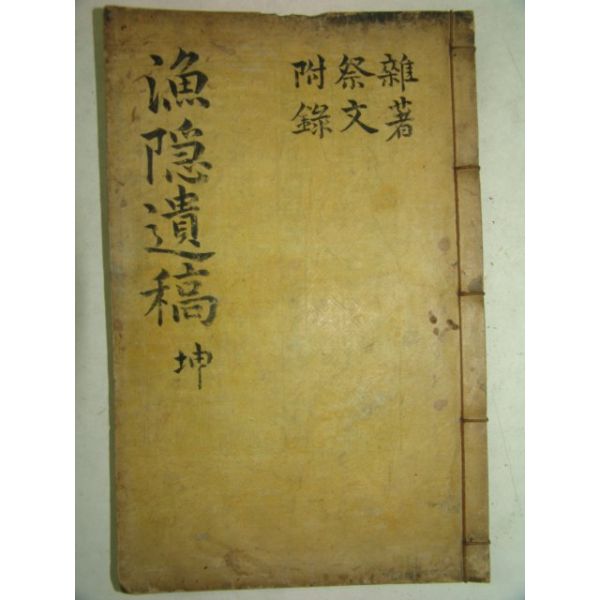 雜著
祭文
附錄
漁隠遺稿 坤